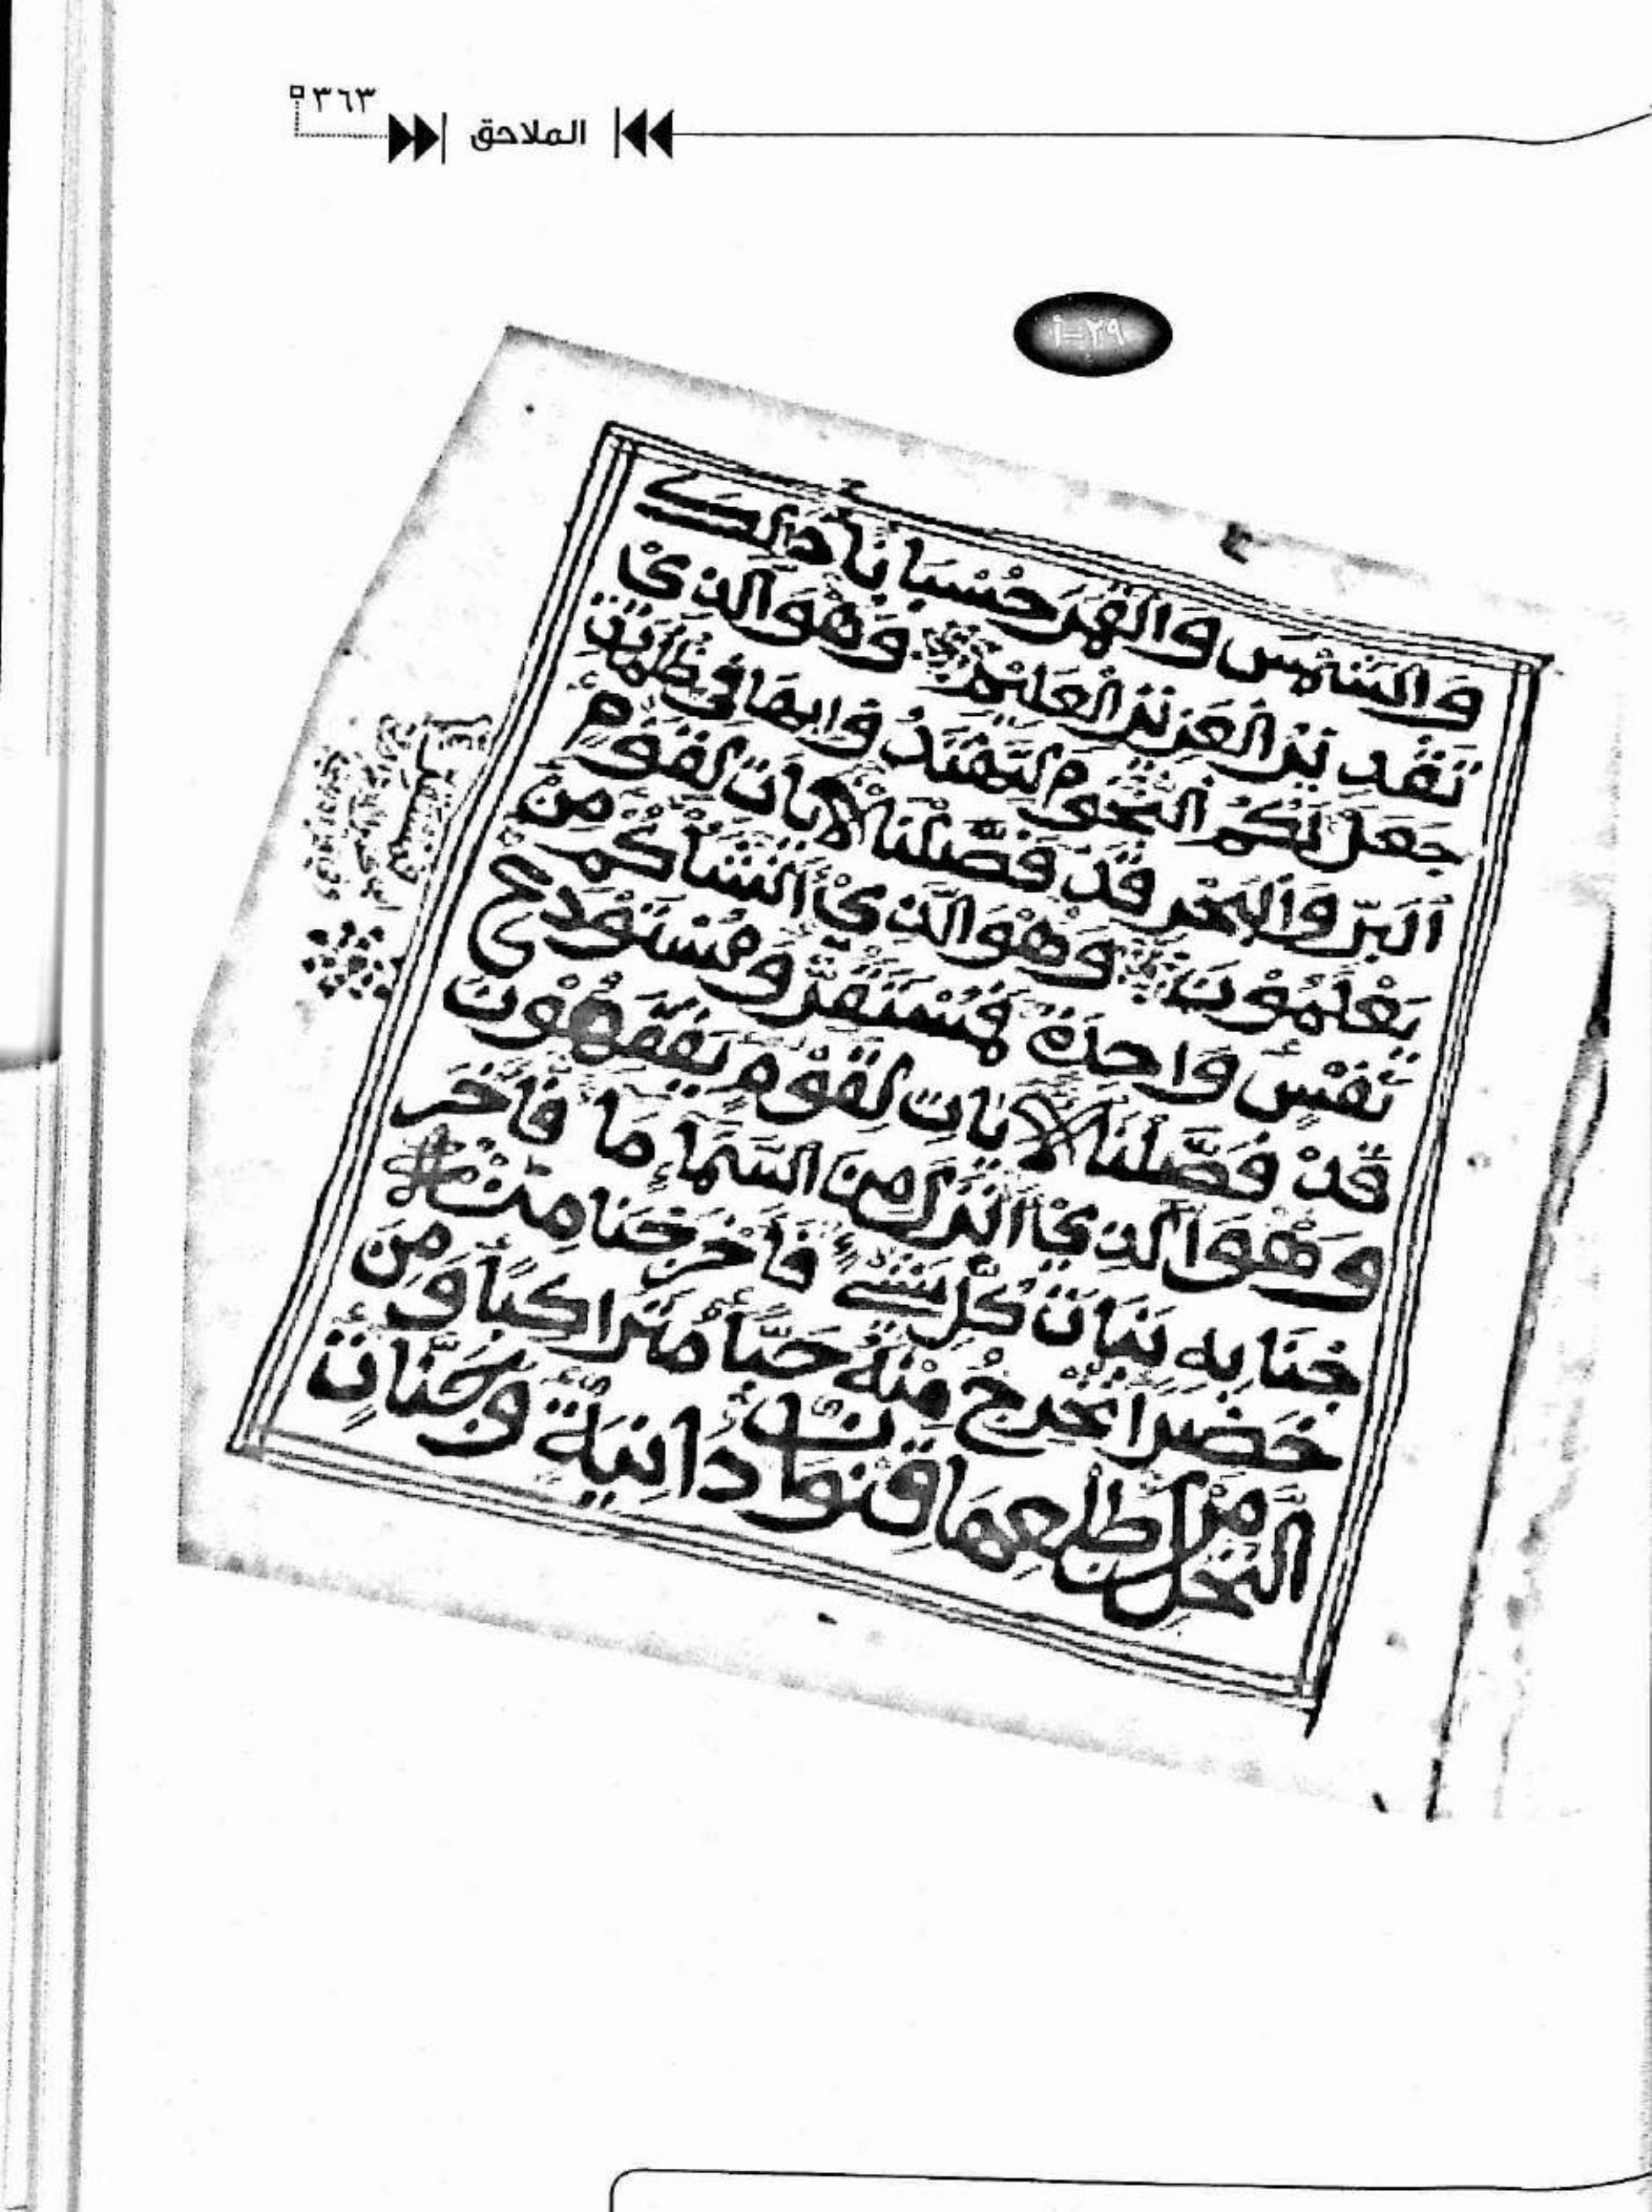 ٣٦٣
الملاحق
٢٩-أ
وَالشَّمْسَ وَالْقَمَرَ حُسْبَانًا ذَالِكَ
تَقْدِيْرُ الْعَزِيْزِ الْعَلِيْمِ وَهْوَ الَّذِىْ
جَعَلَ لَكُمُ النُّجُوْمَ لِتَهْتَدُوْا بِهَا فِى ظُلُمَاتِ
الْبَرِّ وَالْبَحْرِ قَدْ فَصَّلْنَا الْاٰيَاتِ لِقَوْمٍ
يَعْلَمُوْنَ وَهْوَ الَّذِىْ أَنْشَأَكُمْ مِنْ
نَفْسٍ وَاحِدَةٍ فَمُسْتَقَرٌّ وَمُسْتَوْدَعٌ
قَدْ فَصَّلْنَا الْاٰيَاتِ لِقَوْمٍ يَفْقَهُوْنَ
وَهْوَ الَّذِىْ أَنْزَلَ مِنَ السَّمَاءِ مَاءً فَأَخْرَ
جْنَا بِهِ نَبَاتَ كُلِّ شَىْءٍ فَأَخْرَجْنَا مِنْهُ
خَضِرًا نُخْرِجُ مِنْهُ حَبًّا مُتَرَاكِبًا وَمِنَ
النَّخْلِ مِنْ طَلْعِهَا قِنْوَانٌ دَانِيَةٌ وَجَنَّاتٍ